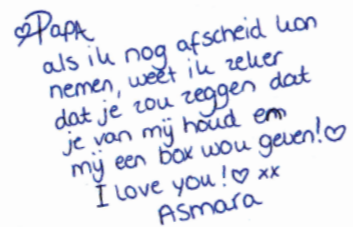 ♡Papa
als ik nog afscheid kon
nemen, weet ik zeker
dat je zou zeggen dat
je van mij houd em
mij een box wou geven!♡
I love you!♡ xx
Asmara